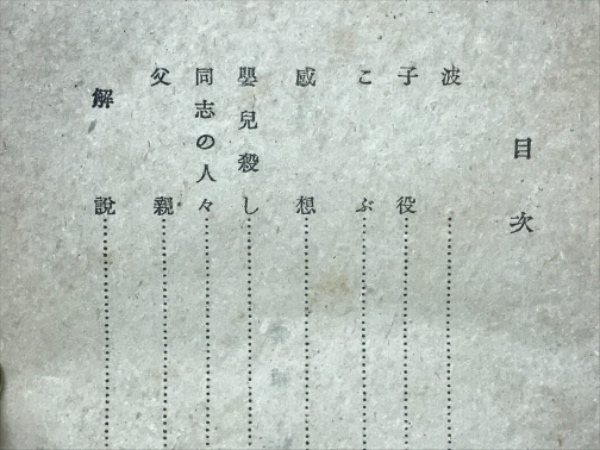 目次
波
子役
こぶ
感想
嬰兒殺し
同志の人々
父親
解說